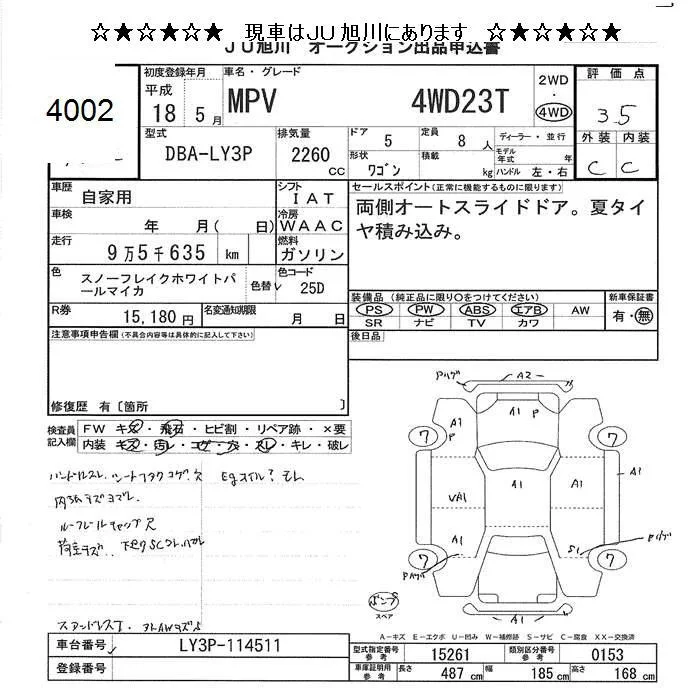 ☆★☆★☆★☆ 現車はJU旭川にあります ☆★☆★☆★☆
JU旭川 オークション出品申込書
4002
初度登録年月
平成
18 5 月
車名・グレード
MPV 4WD23T
2WD
・
4WD
評価点
3.5
外装 内装
C C
型式
DBA-LY3P
排気量
2260
CC
ドア
5
定員
8 人
形状
ワゴン
積載
kg
ディーラー・並行
モデル年式 年
ハンドル 左・右
車歴
自家用
シフト
IAT
車検
年 月( 日)
冷房
WAAC
走行
9万5千635 km
燃料
ガソリン
色
スノーフレイクホワイトパールマイカ
色替
色コード
25D
R券
15,180 円
名変通知期限
月 日
セールスポイント(正常に機能するものに限ります)
両側オートスライドドア。夏タイ
ヤ積み込み。
装備品(純正品に限り○をつけてください)
PS PW ABS エアB AW
SR ナビ TV カワ
新車保証書
有・無
後日品
注意事項申告欄(不具合内容等は具体的に記入して下さい)
修復歴 有〔箇所 〕
検査員
記入欄
FW キズ・飛石・ヒビ割・リペア跡・×要
内装 キズ・汚レ・コゲ・穴・スレ・キレ・破レ
A2
A1 P
A1
P
7 7
A1
A1
VA1
A1
A1
A1
S1
7 7
A1
スペア
A-キズ E-エクボ U-凹み W-補修跡 S-サビ C-腐食 XX-交換済
車台番号
LY3P-114511
登録番号
型式指定番号
参考
15261
類別区分番号
参考
0153
車庫証明用
参考
長さ
487 cm
幅
185 cm
高さ
168 cm